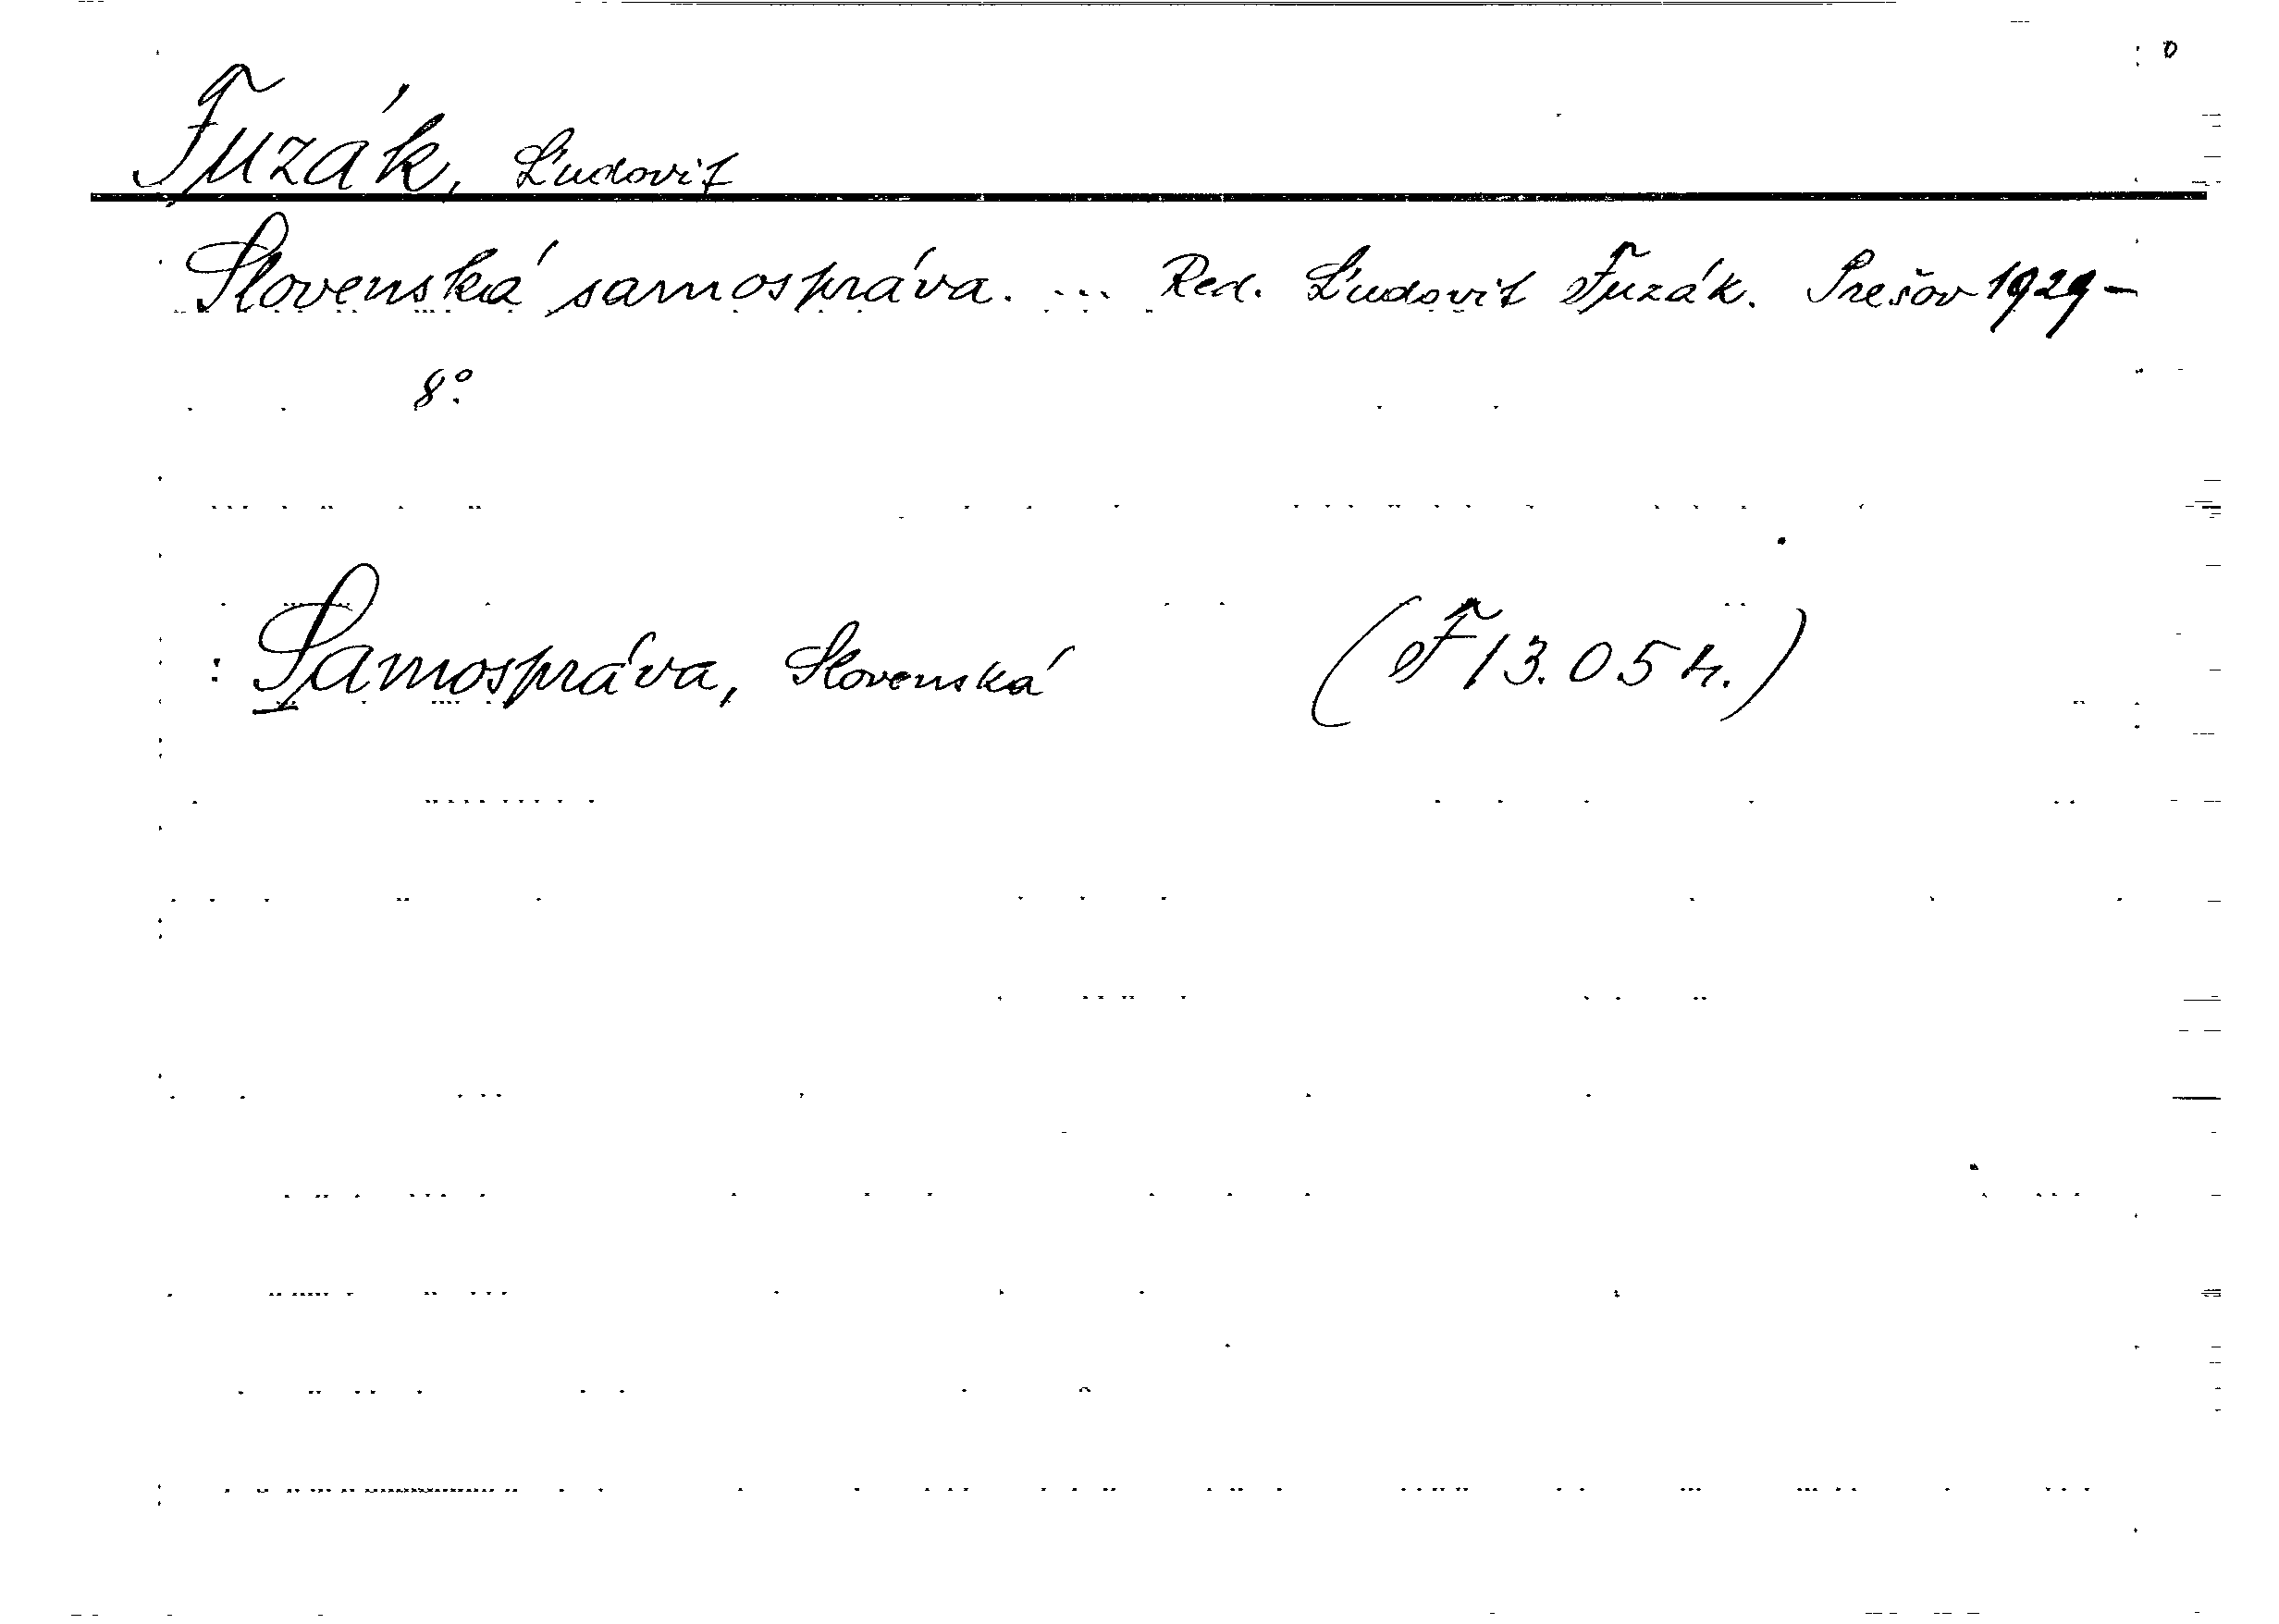 Fuzák, Ľudovít
Slovenská samospráva. ... Red. Ľudovít Fuzák. Prešov 1929-
8°.
: Samospráva, Slovenská (F 13.054.)